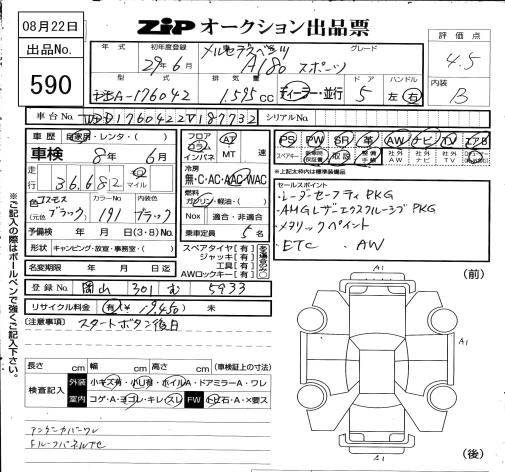 08月22日
ZIP オークション出品票
出品No.
590
年式 初年度登録 グレード
29年6月
メルセデスベンツ
A180 スポーツ
評価点
4.5
内装
B
型式 排気量 ドア ハンドル
DBA-176042 1,595cc ディーラー・並行 5 左 右
車台No. シリアルNo.
車歴 自家用・レンタ・( )
車検 8年 6月
走行 36,682 km マイル
色 コスモスブラック カラーNo. 191 ブラック
(元色 )
予備検 年 月 日(3・8)No.
形状 キャンピング・放宣・事務室・( )
名変期限 年 月 日迄
フロア コラム インパネ AT MT 速
冷房 無・C・AC・AAC・WAC
燃料 ガソリン・軽油・( )
Nox 適合・非適合
乗車定員 5 名
スペアタイヤ[有]
ジャッキ[有]
工具[有]
AWロックキー[有]
PS PW SR 革 AW ナビ TV エアB
スペアキー 保証書 取説 手帳 社外AW 社外ナビ 社外TV
※上記太枠内は標準装備品
セールスポイント
・レーダーセーフティPKG
・AMGレザーエクスクルーシブPKG
・メタリックペイント
・ETC ・AW
登録No. 岡山 301 む 5933
リサイクル料金 有(¥ 19,450) 未
(注意事項) スタートボタン後日
長さ cm 幅 cm 高さ cm (車検証上の寸法)
検査記入 外装 小キズ有・小U有・ホイルA・ドアミラーA・ワレ
室内 コゲ・A・ヨゴレ・キレ・スレ FW トビ石・A・X要ス
アンダーカバーワレ
(前)
A1
A1
A1
(後)
※ご記入の際はボールペンで強くご記入下さい。